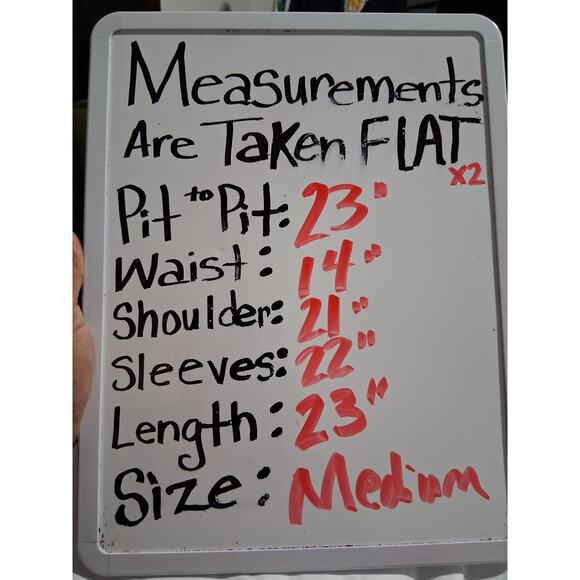 Measurements
Are Taken FLAT
x2
Pit to Pit: 23"
Waist: 14"
Shoulder: 21"
Sleeves: 22"
Length: 23"
Size: Medium